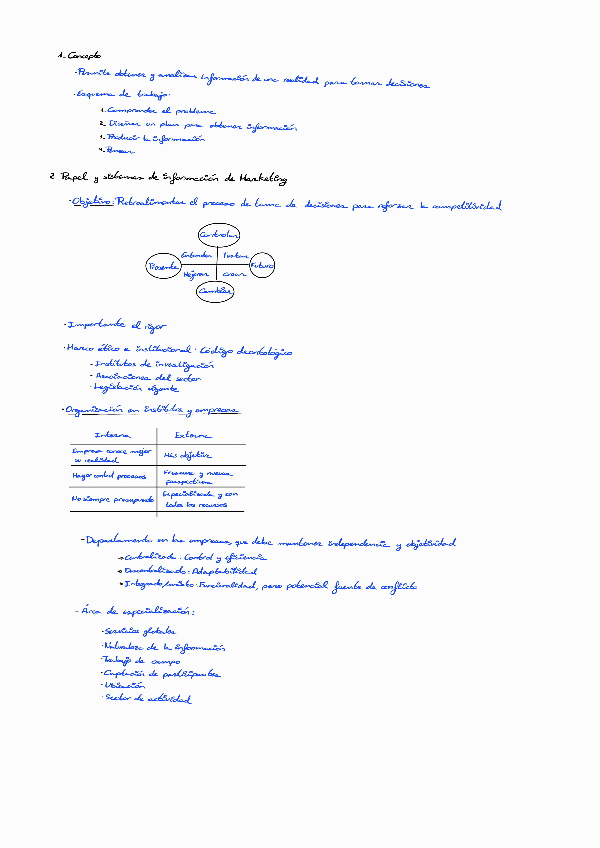 1. Concepto
· Permite obtener y analizar información de una realidad para tomar decisiones
· Esquema de trabajo:
1. Comprender el problema
2. Diseñar un plan para obtener información
3. Producir la información
4. Pensar
2 Papel y sistemas de información de Marketing
· Objetivo: Retroalimentar el proceso de toma de decisiones para reforzar la competitividad
Controlar
Entender
Presente
Futuro
Mejorar Crear
Cambiar
· Importante el rigor
· Marco ético e institucional: Código deontológico
- Institutos de investigación
- Asociaciones del sector
- Legislación vigente
· Organización en institutos y empresas
Interna Externa
Empresa conoce mejor su realidad
Más objetiva
Mayor control procesos
Frescura y nuevas perspectivas
No siempre presupuesto
Especializada y con todos los recursos
- Departamento en las empresas, que debe mantener independencia y objetividad
Centralizado: Control y eficiencia
Descentralizado: Adaptabilidad
Integrado/mixto: Funcionalidad, pero potencial fuente de conflicto
- Área de especialización:
· Servicios globales
· Naturaleza de la información
· Trabajo de campo
· Captación de participantes
· Ubicación
· Sector de actividad